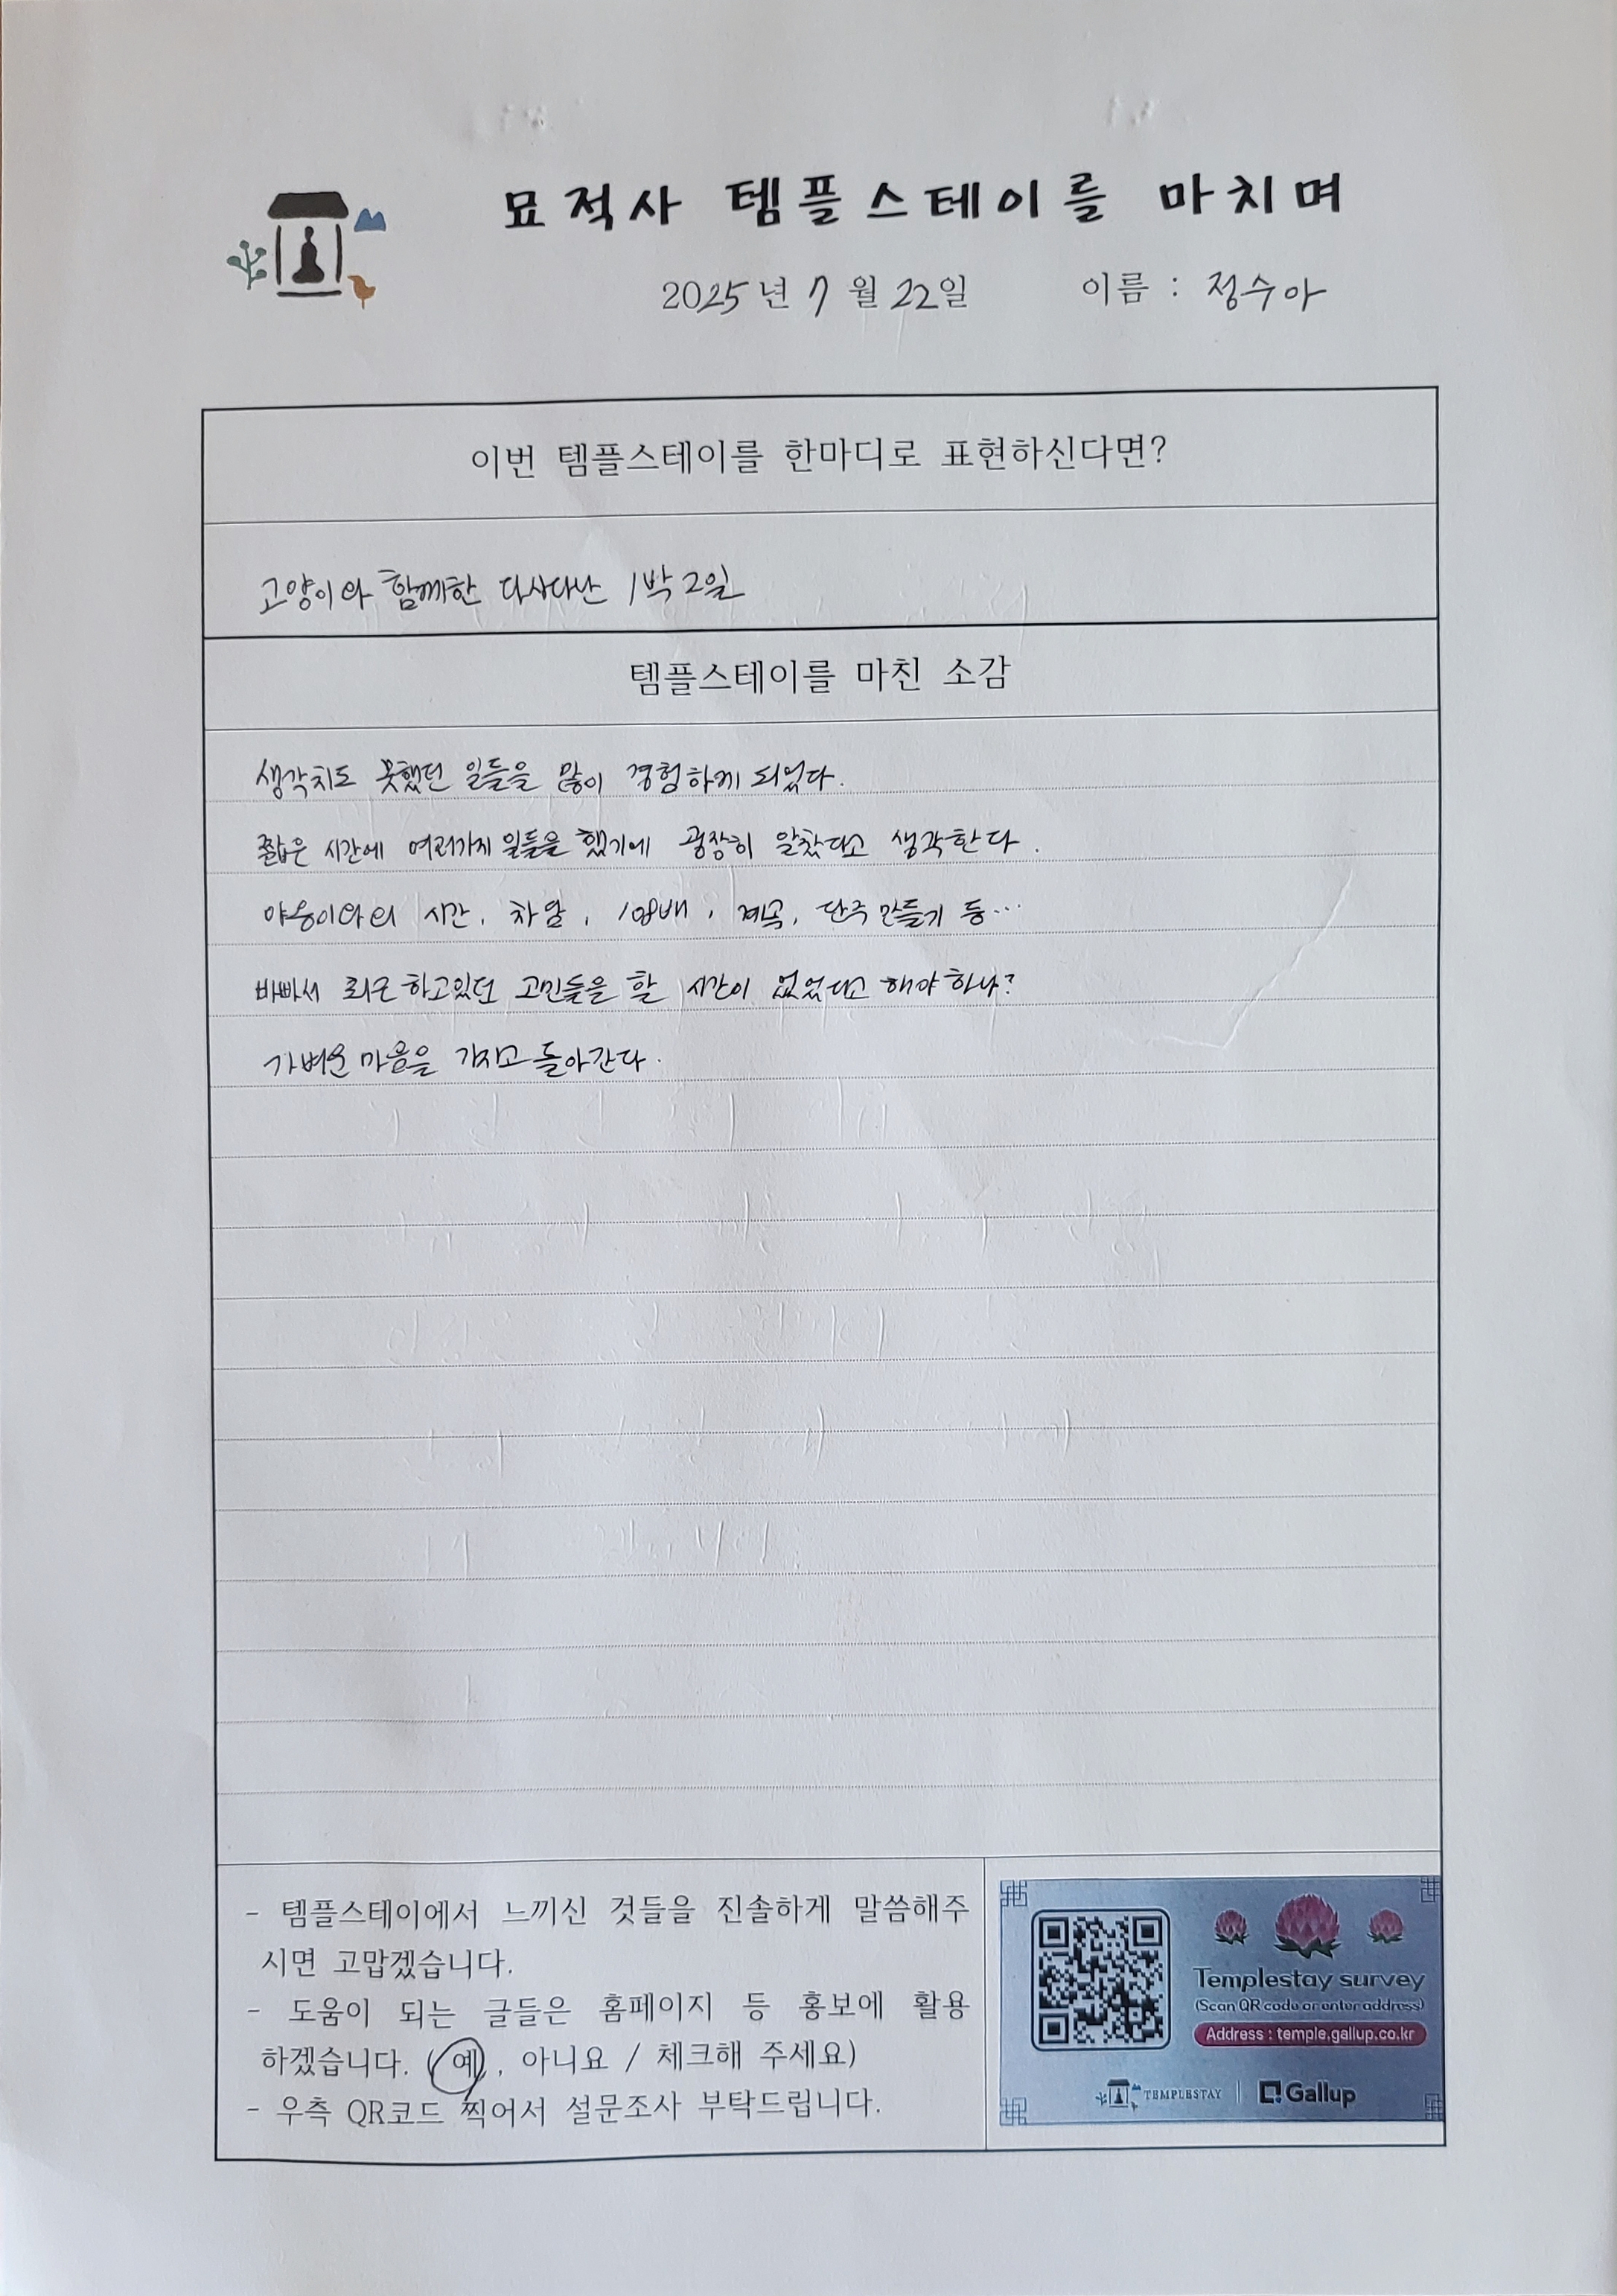 묘적사 템플스테이를 마치며
2025년 7월 22일 이름 : 정수아
이번 템플스테이를 한마디로 표현하신다면?
고양이와 함께한 다사다난 1박 2일
템플스테이를 마친 소감
생각치도 못했던 일들을 많이 경험하게 되었다.
짧은 시간에 여러가지 일들을 했기에 굉장히 알찼다고 생각한다.
야옹이와의 시간, 차담, 108배, 계곡, 단주 만들기 등…
바빠서 최근 하고있던 고민들을 할 시간이 없었다고 해야 하나?
가벼운 마음을 가지고 돌아간다.
- 템플스테이에서 느끼신 것들을 진솔하게 말씀해주
시면 고맙겠습니다.
- 도움이 되는 글들은 홈페이지 등 홍보에 활용
하겠습니다. (예, 아니요 / 체크해 주세요)
- 우측 QR코드 찍어서 설문조사 부탁드립니다.
Templestay survey
(Scan QR code or enter address)
Address : temple.gallup.co.kr
TEMPLESTAY | Gallup